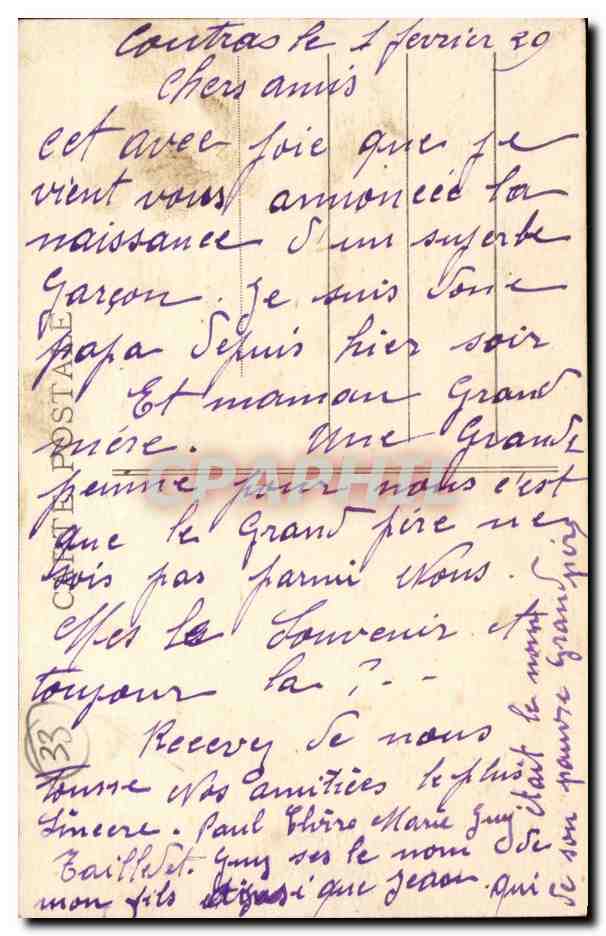 Coutras le 1 fevrier 29
Chers amis
cet avec joie que je
vient vous annoncée la
naissance d'un superbe
Garçon. Je suis donc
papa depuis hier soir
Et maman Grand
mére. Une Grande
peinne pour nous c'est
que le Grand pére ne
sois pas parmi Nous.
Mes le Souvenir et
toujour la ? - -
Recevez de nous
tousse Nos amitiées le plus
Sincere. Paul Elvire Marie Guy
Tailledet. Guy ses le nom de
mon fils ainsi que Jean qui
était le nom
de son pauvre Grand pére
CARTE POSTALE
33
CPAPHIL